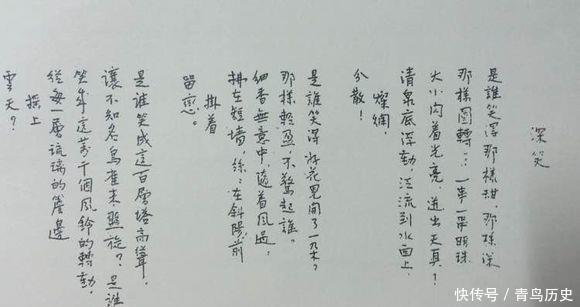 深笑
是誰笑得那樣甜,那樣深
那樣圓轉?一串一串明珠
大小闪着光亮,迸出天真!
清泉底浮動,泛流到水面上,
燦爛,
分散!
是誰笑得好花兒開了一朵?
那樣輕盈,不驚起誰。
細香無意中,隨着風過,
拂在短墻,絲絲在斜陽前
掛着
留戀。
是誰笑成這百層塔高聳,
讓不知名鳥雀來盤旋?是誰
笑成這萬千個風鈴的轉動,
從每一層琉璃的簷邊
搖上
雲天?
快传号/青鸟历史